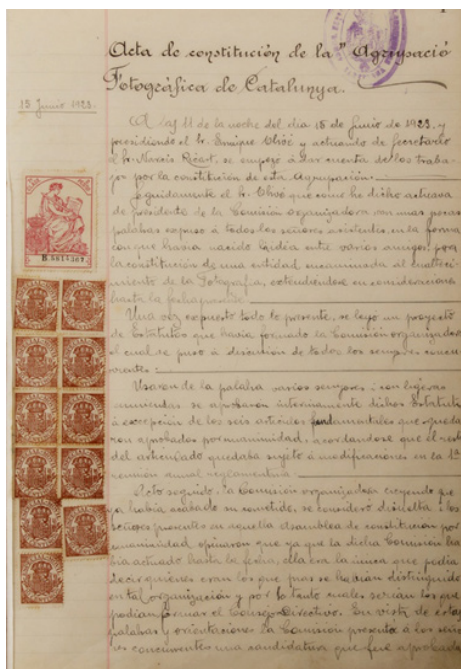 Acta de constitución de la "Agrupació
Fotográfica de Catalunya.
15 Junio 1923.
A las 11 de la noche del dia 15 de Junio de 1923, y
presidiendo el Sr. Enrique Olivé y actuando de Secretario
el Sr. Narcis Ricart, se empezó á dar cuenta de los traba-
jos por la constitución de esta Agrupación.
Seguidamente el Sr. Olivé que como he dicho actuava
de presidente de la Comisión organizadora con unas pocas
palabras expuso á todos los señores asistentes, en la forma
con que havia nacido la idea entre varios amigos, para
la constitución de una entidad encaminada al enalteci-
miento de la Fotografia, extendiendose en consideraciones
hasta la fecha
Una vez expuesto todo lo presente, se leyó un proyecto
de Estatutos que havia formado la Comisión organizadora
el cual se puso á discusión de todos los señores concu-
rrentes:
Usaron de la palabra varios señores i con ligeras
enmiendas se aprobaron interinamente dichos Estatutos
á excepción de los seis articulos fundamentales que queda-
ron aprobados por unanimidad, acordandose que el resto
del articulado quedaba sujeto á modificaciones en la 1ª
reunión anual reglamentaria.
Acto seguido, la Comisión organizadora creyendo que
ya habia acabado su cometido, se consideró disuelta i los
señores presentes en aquella asamblea de constitución por
unanimidad, opinaron que ya que la dicha Comisión ha-
bia actuado hasta la fecha, ella era la única que podia
decir quienes eran los que mas se habian distinguido
en tal organización y por lo tanto cuales serian los que
podian formar el Consejo Directivo. En vista de estas
palabras y orientaciones la Comisión presentó á los seño-
res concurrentes una candidatura que fué aprobada